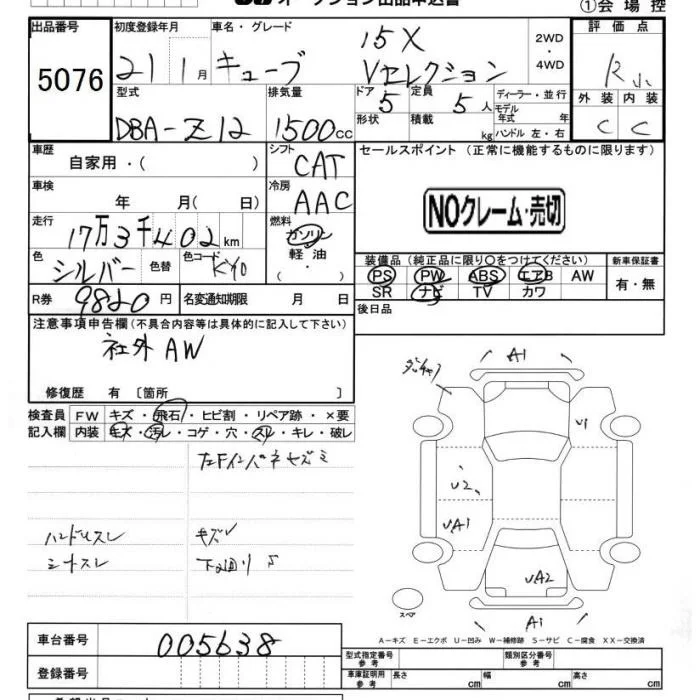 オークション出品申込書
①会場控
出品番号
5076
初度登録年月
21 1月
車名・グレード
キューブ
15X
Vセレクション
2WD
・
4WD
評価点
R
外装 内装
C C
型式
DBA-Z12
排気量
1500cc
ドア
5
形状
定員
5人
積載
kg
ディーラー・並行
モデル
年式 年
ハンドル 左・右
車歴
自家用・( )
シフト
CAT
セールスポイント (正常に機能するものに限ります)
NOクレーム・売切
車検
年 月( 日)
冷房
AAC
走行
17万3千402km
燃料
ガソリン
軽油
( ・ )
色
シルバー
色替
色コード
KY0
装備品(純正品に限り○をつけてください)
PS PW ABS エアB AW
SR ナビ TV カワ
新車保証書
有・無
R券
9820円
名変通知期限 月 日
後日品
注意事項申告欄(不具合内容等は具体的に記入して下さい)
社外AW
修復歴 有 〔箇所 〕
検査員
記入欄
FW キズ・飛石・ヒビ割・リペア跡・×要
内装 キズ・汚レ・コゲ・穴・スレ・キレ・破レ
左Fインパネキズミ
ハンドルスレ
シートスレ
キズ
下廻りS
A1
U1
U2
UA1
UA2
A1
スペア
A−キズ E−エクボ U−凹み W−補修跡 S−サビ C−腐食 XX−交換済
車台番号
005638
登録番号
型式指定番号
参考
類別区分番号
参考
車庫証明用
参考
長さ cm 幅 cm 高さ cm